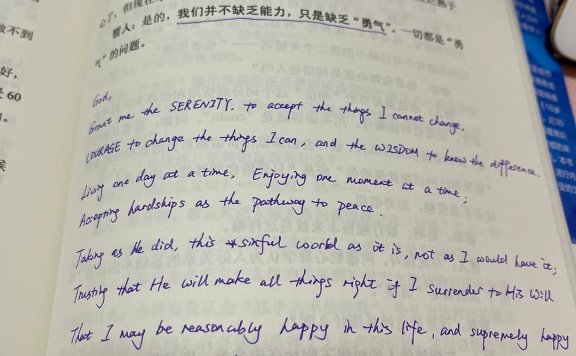 心了，但现在
哲人：是的，我们并不缺乏能力，只是缺乏“勇气”。一切都是“勇
气”的问题。
做不到
好，
60
God,
Grant me the SERENITY. to accept the things I cannot change,
COURAGE to change the things I can, and the WISDOM to know the difference.
Living one day at a time, Enjoying one moment at a time;
Accepting hardships as the pathway to peace.
Taking as He did, this sinful world as it is, not as I would have it;
Trusting that He will make all things right if I surrender to His Will
That I may be reasonably happy in this life, and supremely happy